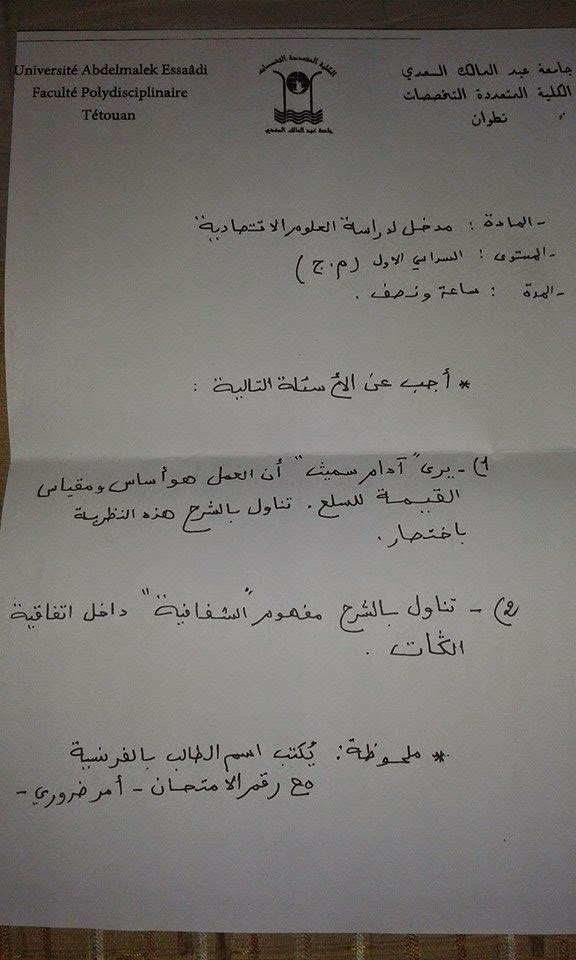 Université Abdelmalek Essaâdi
Faculté Polydisciplinaire
Tétouan
الكلية المتعددة التخصصات
جامعة عبد المالك السعدي
جامعة عبد المالك السعدي
الكلية المتعددة التخصصات
تطوان
- المادة : مدخل لدراسة العلوم الاقتصادية
- المستوى : السداسي الاول (م.ج)
- المدة : ساعة ونصف .
* أجب عن الأسئلة التالية :
1) - يرى "آدام سميث" أن العمل هو أساس ومقياس
القيمة للسلع . تناول بالشرح هذه النظرية
باختصار.
2) - تناول بالشرح مفهوم "الشفافية" داخل اتفاقية
الݣات .
* ملحوظة: يُكتب اسم الطالب بالفرنسية
مع رقم الامتحان - أمر ضروري -